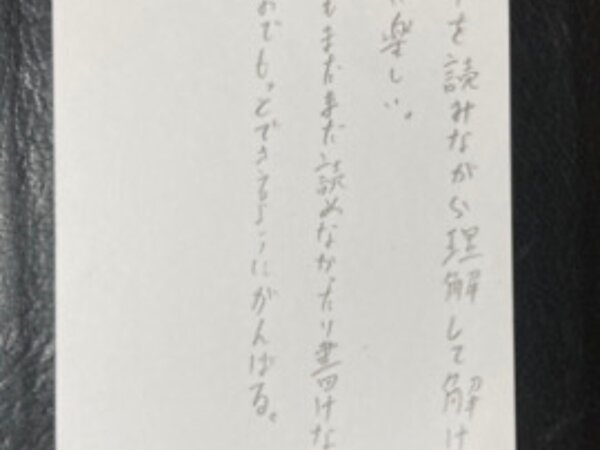 を読みながら理解して解け
楽しい。
もまだまだ読めなかったり書けな
のでもっとできるようにがんばる。